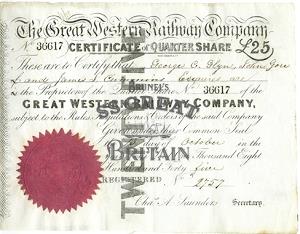 The Great Western Railway Company
No 36617 CERTIFICATE of QUARTER SHARE £25
These are to Certify that George C. Glyn, John
and James Esquires are
the Proprietors of the Quarter Share No 36617 of the
GREAT WESTERN RAILWAY COMPANY,
subject to the Rules, Regulations & Orders of the said Company
Given under the Common Seal
day of October in the
Thousand Eight
Hundred and Forty five
REGISTERED
Chas. A. Saunders Secretary.
TWENTY
BRUNEL'S
BRITAIN